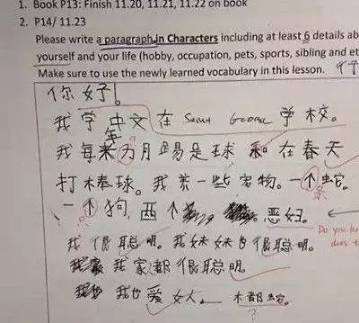 1. Book P13: Finish 11.20, 11.21, 11.22 on book
2. P14/ 11.23
Please write a paragraph in Characters including at least 6 details ab
yourself and your life (hobby, occupation, pets, sports, sibling and et
Make sure to use the newly learned vocabulary in this lesson.
你好!
我学中文在 学校。
年
我每 月踢是球和在春天
打棒球。我养一些宠物。一个蛇。
条
一个狗,两个 恶妇。
我很聪明。我妹妹也很聪明。
我家都很聪明。
我也爱女人。 都
Do you
does t
?